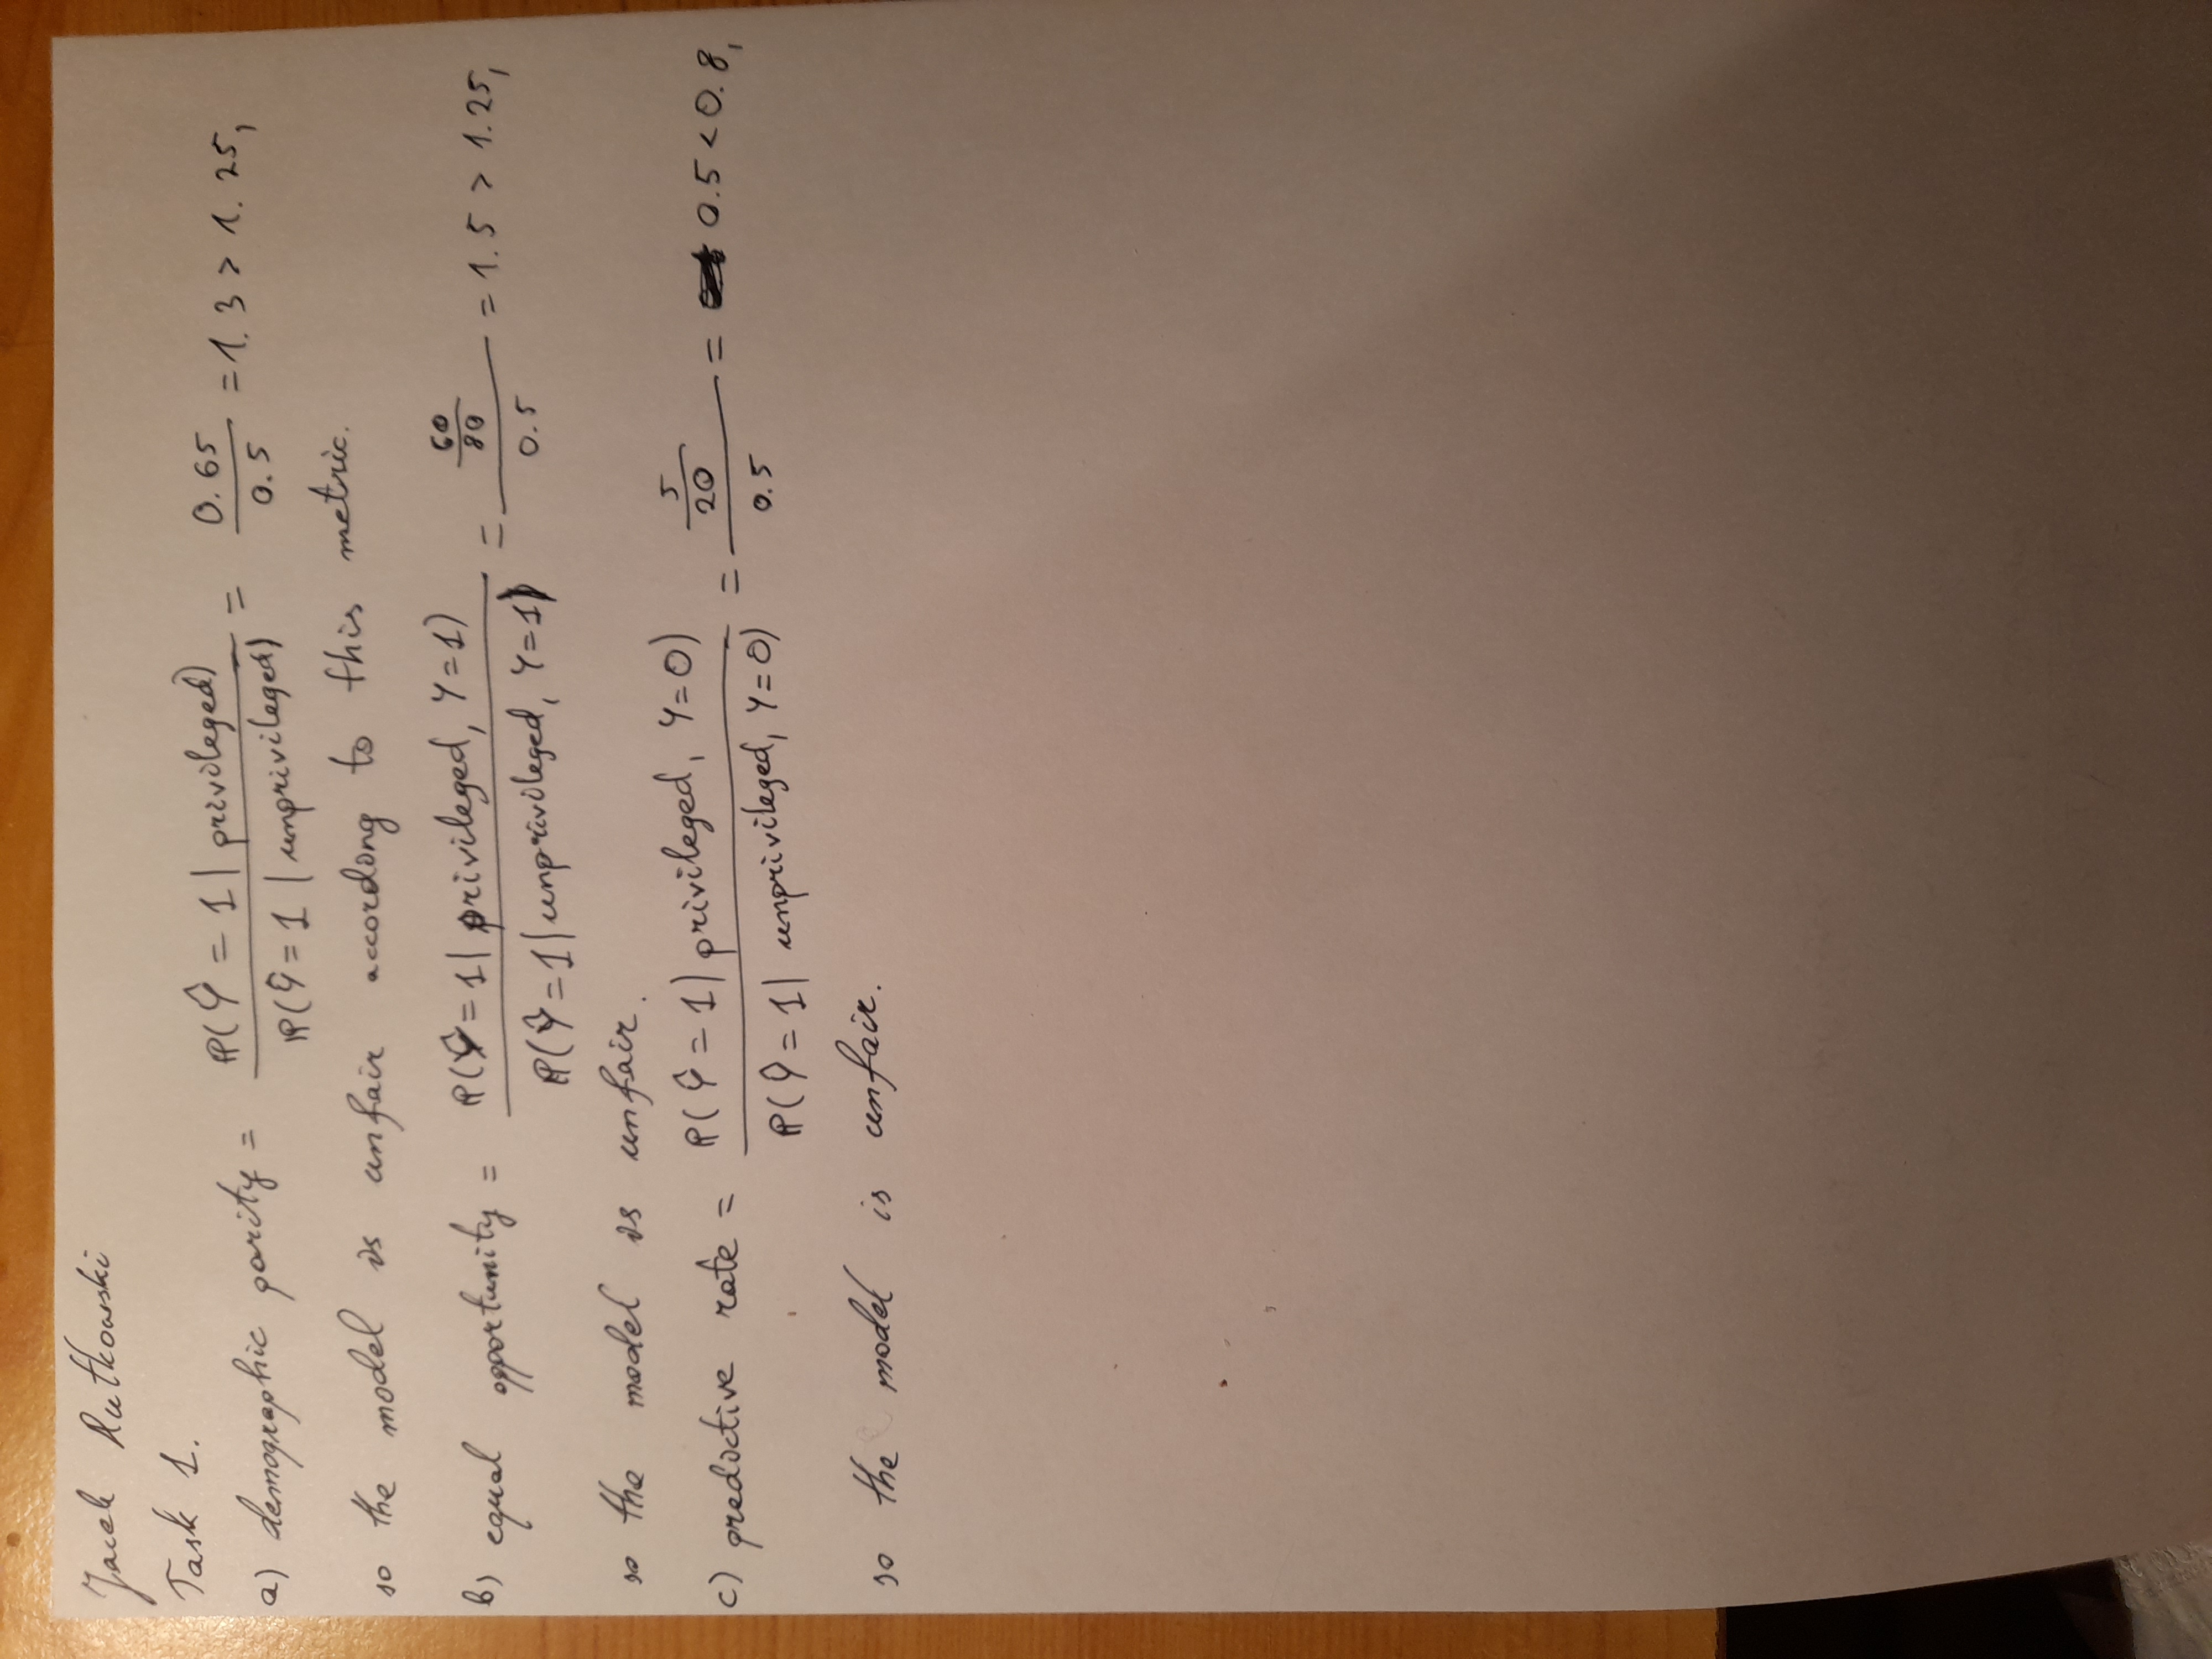 Jacek Rutkowski
Task 1.
a) demographic parity = P(Ŷ = 1 | privileged) / P(Ŷ = 1 | unprivileged) = 0.65 / 0.5 = 1.3 > 1.25,
so the model is unfair according to this metric.
b) equal opportunity = P(Ŷ = 1 | privileged, Y = 1) / P(Ŷ = 1 | unprivileged, Y = 1) = (60 / 80) / 0.5 = 1.5 > 1.25,
so the model is unfair.
c) predictive rate = P(Ŷ = 1 | privileged, Y = 0) / P(Ŷ = 1 | unprivileged, Y = 0) = (5 / 20) / 0.5 = 0.5 < 0.8,
so the model is unfair.